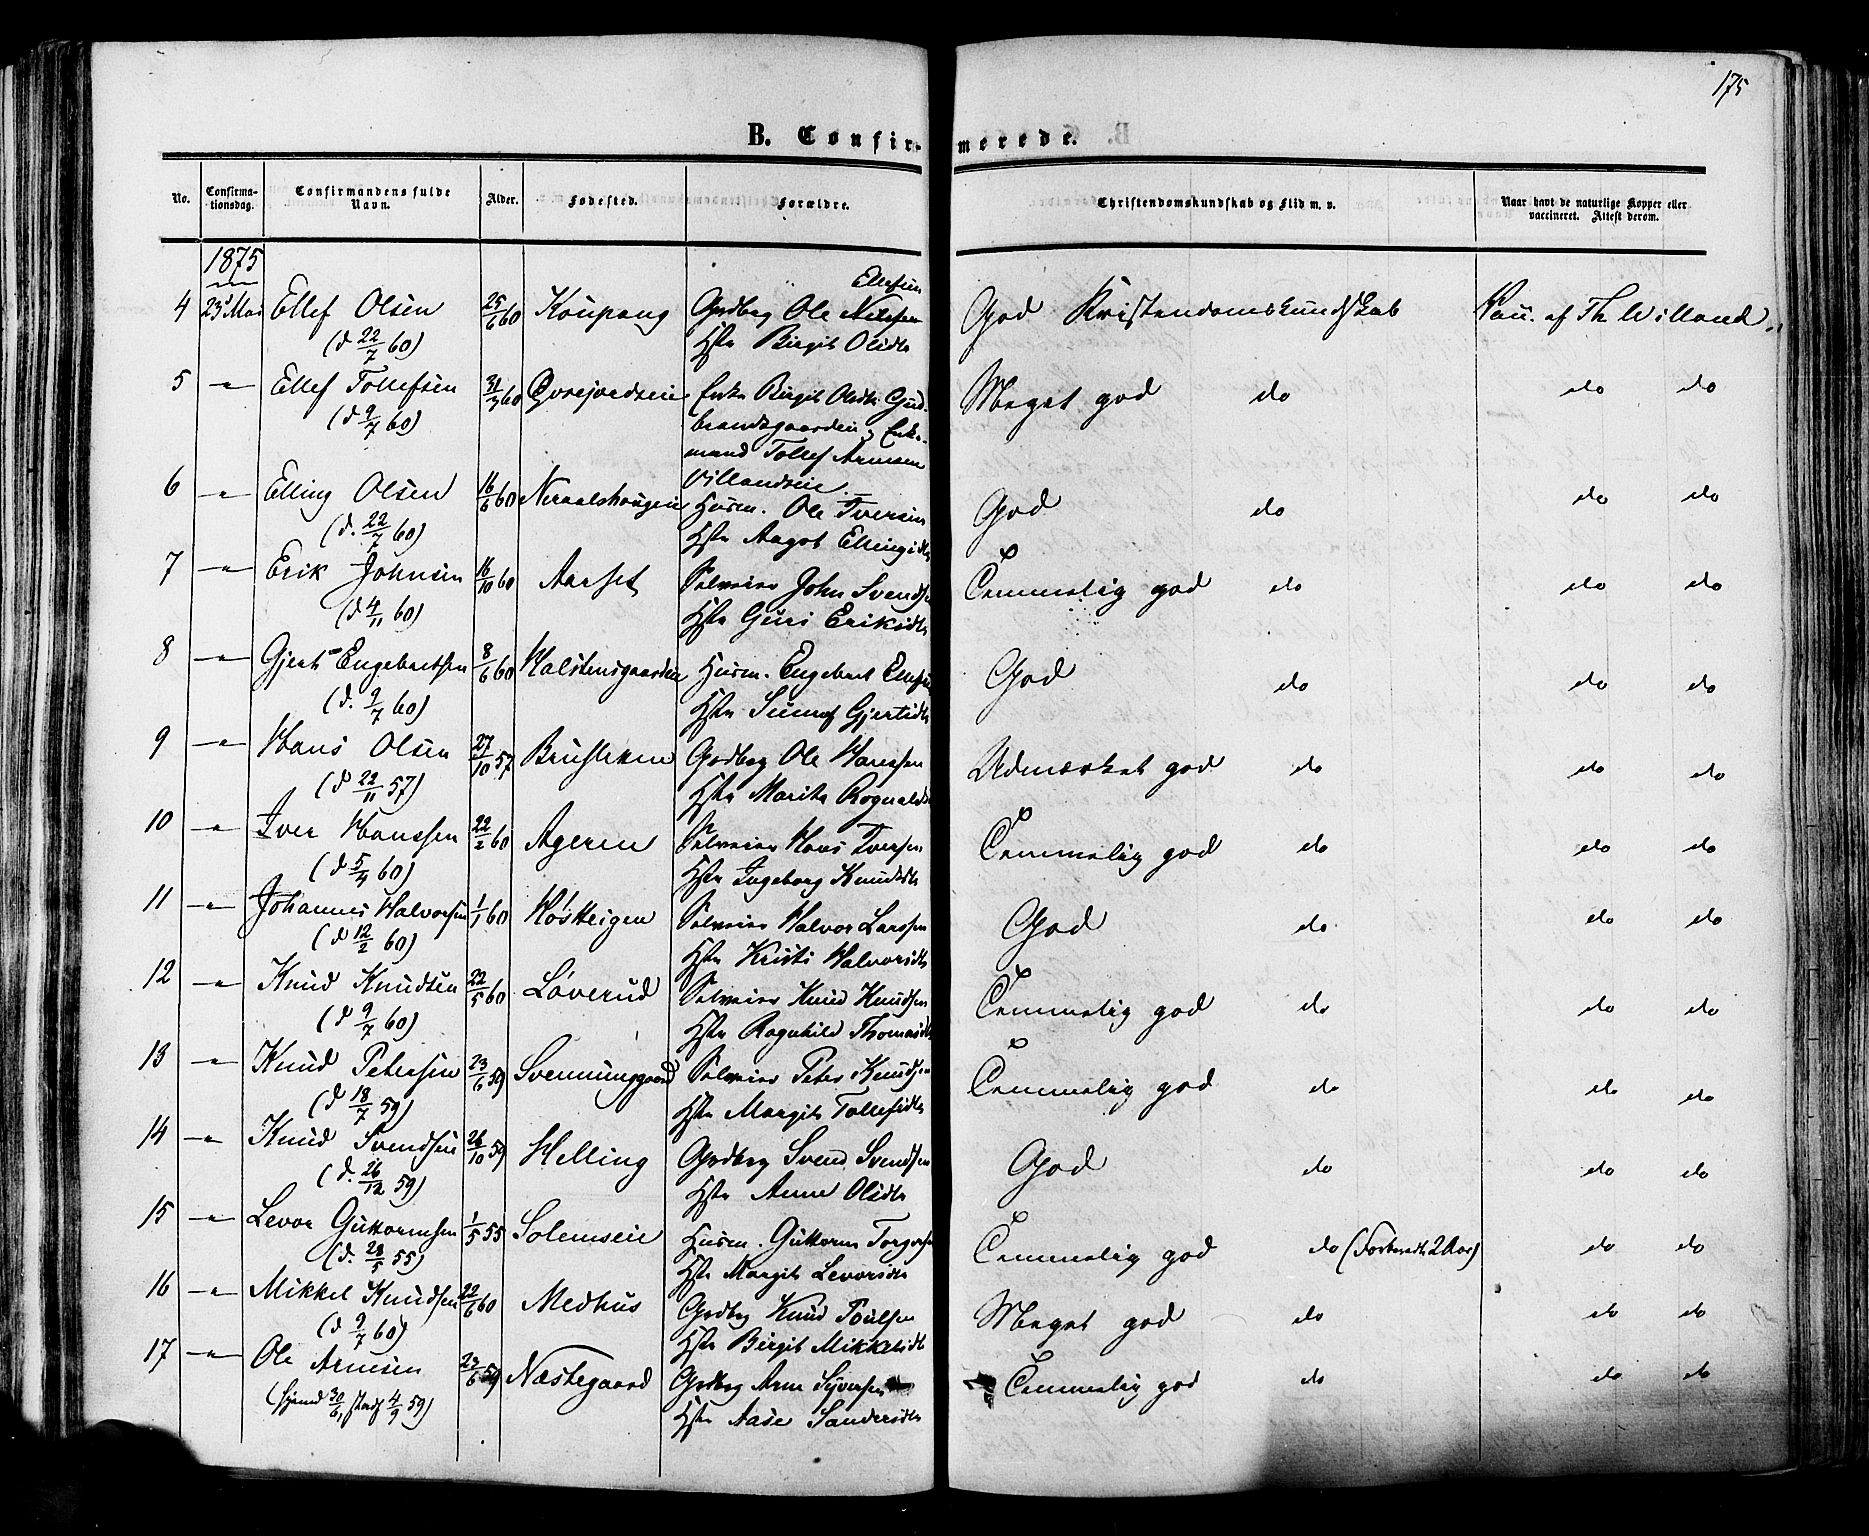 175
B. Confirmerede.
No. Confirmationsdag. Confirmandens fulde Navn. Alder. Fødested. Forældre. Christendomskundskab og Flid m. v. Naar havt de naturlige Kopper eller vaccineret. Attest derom.
1875
Ellefsen
4 23d Mai Ellef Olsen 25/6 60 Koupang Grdbrg Ole Nilssen God Kristendomskundskab af Th Villand
(d 22/7 60) Hstr Birgit Olsdtr
5 -"- Ellef Tollefsen 31/3 60 Enke Birgit Olsdtr Gud- Meget god do do do
(d 9/7 60) brandsgaarden, Enke-
mand Tollef Arnesen
Villandseie
6 -"- Elling Olsen 16/6 60 Neraalshaugen Husm. Ole Iversen God do do do
(d. 22/7 60) Hstr Aagot Ellingsdtr
7 -"- Erik Johnsen 16/10 60 Aarset Selveier John Svendsen Temmelig god do do do
(d 4/11 60) Hstr Guri Eriksdtr
8 -"- Gjert Engebretsen 8/6 60 Halstensgaarden Husm. Engebret God do do do
(d. 9/7 60) Hstr Gjertsdtr
9 -"- Hans Olsen 27/10 57 Grdbrg Ole Hanssen Udmærket god do do do
(d 22/11 57) Hstr Marit Rognaldsdtr
10 -"- Iver Hanssen 22/2 60 Ageren Selveier Hans Iversen Temmelig god do do do
(d 5/4 60) Hstr Ingeborg Knudsdtr
11 -"- Johannes Halvorsen 1/1 60 Selveier Halvor Larssen God do do do
(d 12/2 60) Hstr Kristi Halvorsdtr
12 -"- Knud Knudsen 22/5 60 Løverud Selveier Knud Knudsen Temmelig god do do do
(d 9/7 60) Hstr Ragnhild Thomasdtr
13 -"- Knud Petersen 23/6 59 Svenmunggaard Selveier Peter Knudsen Temmelig god do do do
(d 18/7 59) Hstr Margit Tollefsdtr
14 -"- Knud Svendsen 26/10 59 Helling Grdbrg Svend Svendsen God do do do
(d. 26/12 59) Hstr Anne Olsdtr
15 -"- Levor Guttormsen 1/5 55 Solemseie Husm. Guttorm Torgersen Temmelig god do (Forberedt 2 Aar) do do
(d. 28/5 55) Hstr Margit Levorsdtr
16 -"- Mikkel Knudsen 22/6 60 Medhus Grdbrg Knud Poulsen Meget god do do do
(d 9/7 60) Hstr Birgit Mikkelsdtr
17 -"- Ole Arnesen 23/6 59 Næstegaard Grdbrg Arne Sjversen Temmelig god do do do
(hjemd 30/6, stadf 4/9 59) Hstr Aase Sandersdtr